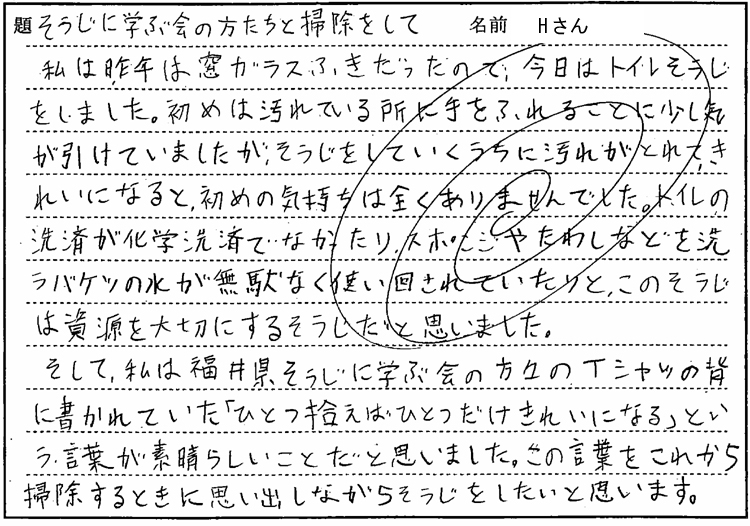 題 そうじに学ぶ会の方たちと掃除をして 名前 Hさん
私は昨年は窓ガラスふきだったので、今日はトイレそうじ
をしました。初めは汚れている所に手をふれることに少し気
が引けていましたが、そうじをしていくうちに汚れがとれて、き
れいになると、初めの気持ちは全くありませんでした。トイレの
洗済が化学洗済でなかったり、スポンジやたわしなどを洗
うバケツの水が無駄なく使い回されていたりと、このそうじ
は資源を大切にするそうじだと思いました。
そして、私は福井県そうじに学ぶ会の方々のTシャツの背
に書かれていた「ひとつ拾えばひとつだけきれいになる」とい
う言葉が素晴らしいことだと思いました。この言葉をこれから
掃除するときに思い出しながらそうじをしたいと思います。